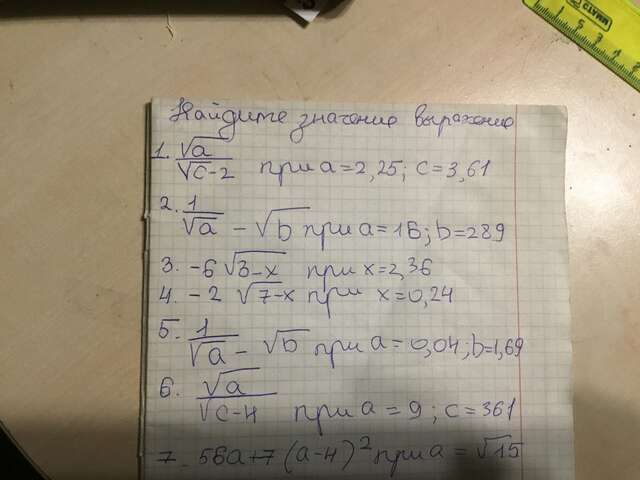 Найдите значение выражение
1. √a / √c-2 при a=2,25; c=3,61
2. 1 / √a - √b при a=16; b=289
3. -6 √3-x при x=2,36
4. -2 √7-x при x=0,24
5. 1 / √a - √b при a=0,04; b=1,69
6. √a / √c-4 при a=9; c=361
7. 56a+7(a-4)² при a=√15